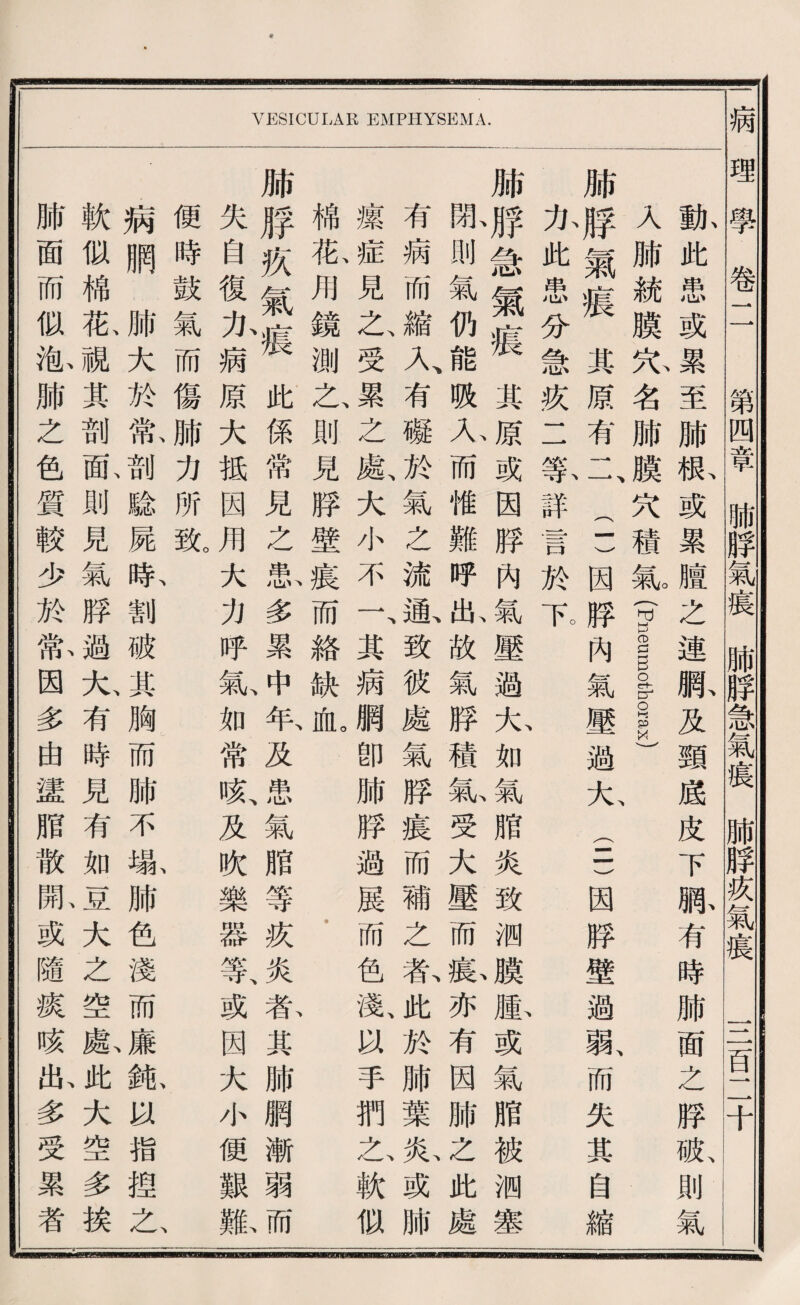 VESICULAR EMPHYSEMA.
病理學 卷二 第四章 肺脬氣痮 肺脬急氣痮 肺脬疚氣痮 三百二十
動、此患或累至肺根、或累膻之連膶、及頸底皮下膶、有時肺面之脬破、則氣
入肺統膜穴、名肺膜穴積氣。(Pneumothorax)
肺脬氣痮 其原有二、(一)因脬內氣壓過大、(二)因脬壁過弱、而失其自縮
力、此患分急疚二等、詳言於下。
肺脬急氣痮 其原或因脬內氣壓過大、如氣脃炎致泗膜腫、或氣脃被泗塞
閉、則氣仍能吸入、而惟難呼出、故氣脬積氣、受大壓而痮、亦有因肺之此處
有病而縮入、有礙於氣之流通、致彼處氣脬痮而補之者、此於肺葉炎、或肺
瘰症見之、受累之處、大小不一、其病膶卽肺脬過展而色淺、以手捫之、軟似
棉花、用鏡測之、則見脬壁痮而絡缺血。
肺脬疚氣痮 此係常見之患、多累中年、及患氣脃等疚炎者、其肺膶漸弱而
失自復力、病原大抵因用大力呼氣、如常咳、及吹樂器等、或因大小便艱難、
便時鼓氣而傷肺力所致。
病膶 肺大於常、剖驗屍時、割破其胸而肺不塌、肺色淺而廉鈍、以指揑之、
軟似棉花、視其剖面、則見氣脬過大、有時見有如豆大之空處、此大空多挨
肺面而似泡、肺之色質較少於常、因多由衋脃散開、或隨痰咳出、多受累者